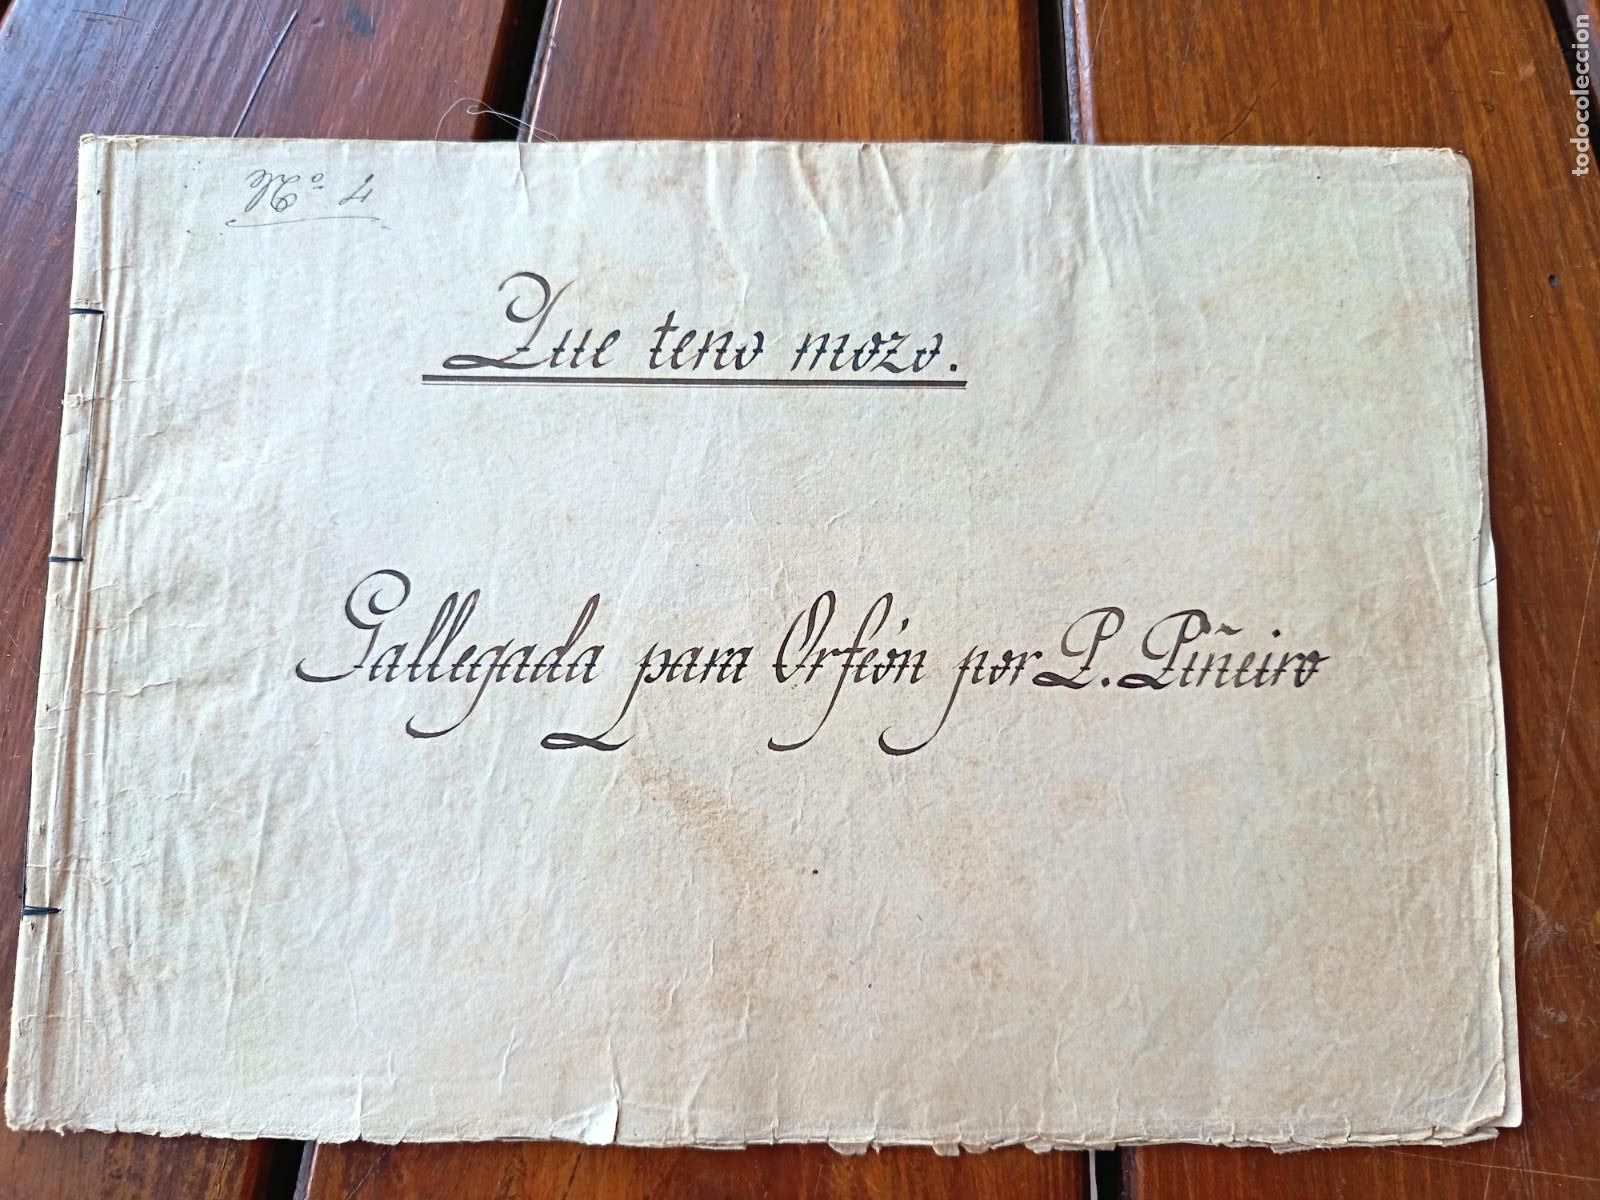 Que teno mozo.
Gallegada para Orfeón por P. Piñeiro
todocoleccion